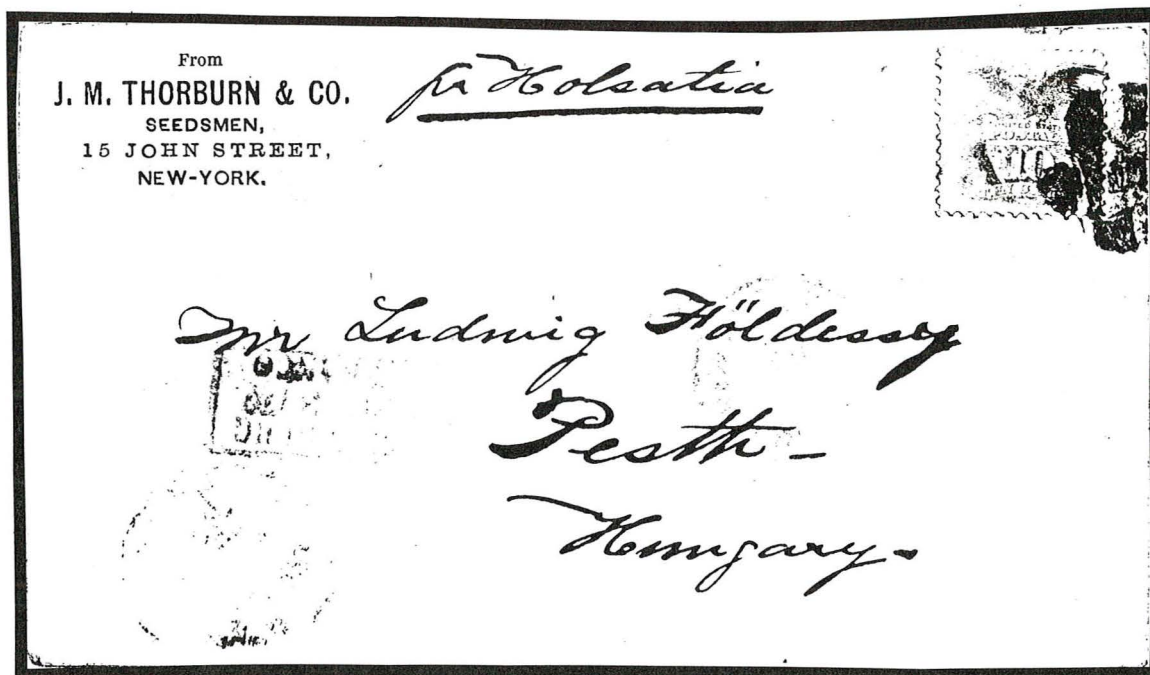 From
J. M. THORBURN & CO.
SEEDSMEN,
15 JOHN STREET,
NEW-YORK.
pr Holsatia
10
Mr Ludwig Földessy
Pesth -
Hungary -